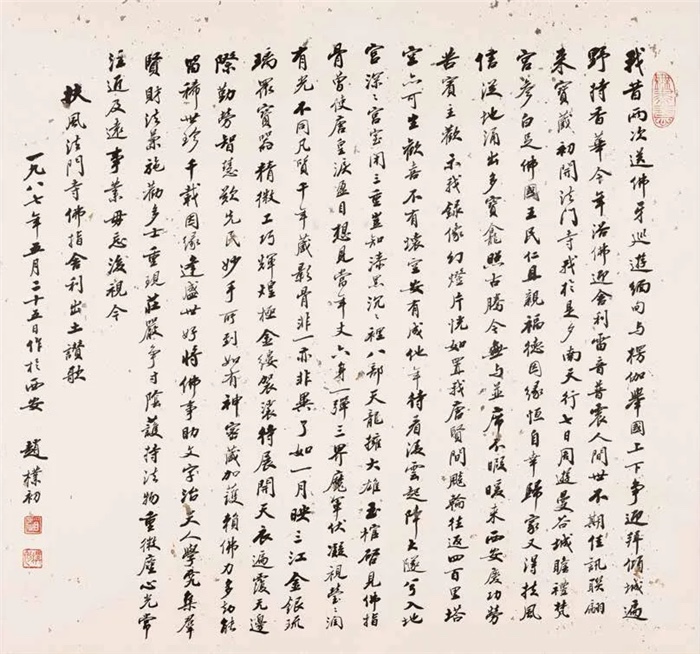 我昔兩次送佛牙巡遊緬甸与楞伽舉國上下争迎拜傾城遍
野持香華今年浴佛迎舍利雷音普震人間世不期佳訊联翩
来寶藏初開法門寺我於是夕南天行七日周遊曼谷城瞻禮梵
宮参白足佛國王民仁且親福德因缘恒自幸歸家又得扶風
信湿地涌出多寶龛照古腾今無与並席不暇暖来西安慶功勞
苦賓主歡示我錄像幻燈片恍如置我唐賢間飈輪往返四百里塔
空亦可生歡喜不有壞空安有成他年待看凌雲起降大隧兮入地
宮深深宮室閉三重豈知漆黑沉沉裡八部天龍擁大雄玉棺启見佛指
骨曾使唐皇淚盈目想見當年丈六身一弹三界魔軍伏凝視瑩瑩潤
有光不同凡質千年藏影骨非一亦非異了如一月映三江金銀琉
璃眾寶器精微工巧輝煌極金缕袈裟特展開天衣遍覆无邊
際勤勞智慧歎先民妙手所到如有神密藏加護賴佛力多劫能
留稀世珍千载因缘逢盛世好將佛事助文字治天人學究集羣
賢財法兼施勸多士重現莊嚴争寸陰護持法物重微塵心光常
注近及遠事業毋忘後視今
扶風法門寺佛指舍利出土讚歌
一九八七年五月二十五日作於西安 趙樸初